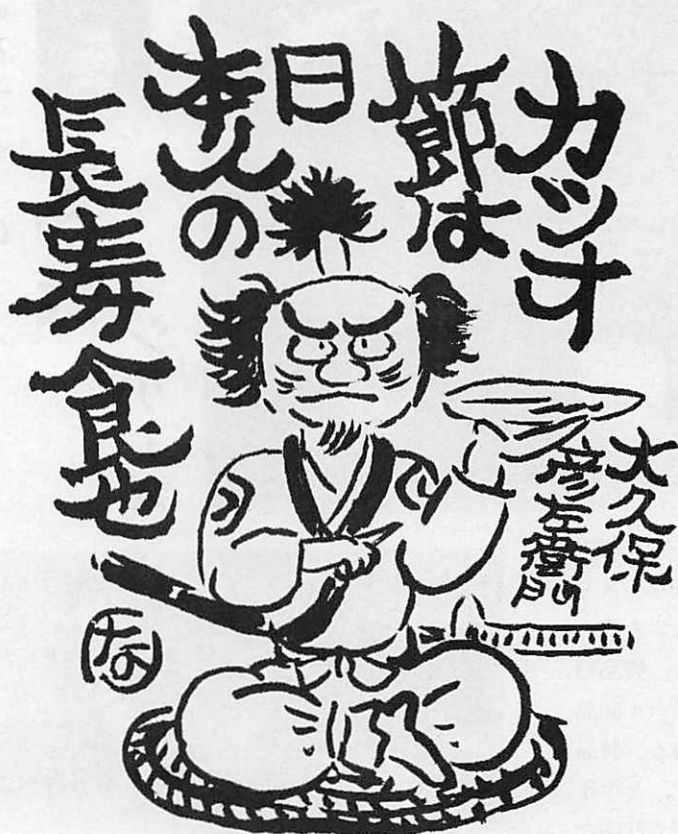 カツオ
節は
日
本人の
長寿食也
大久保
彦左衛門